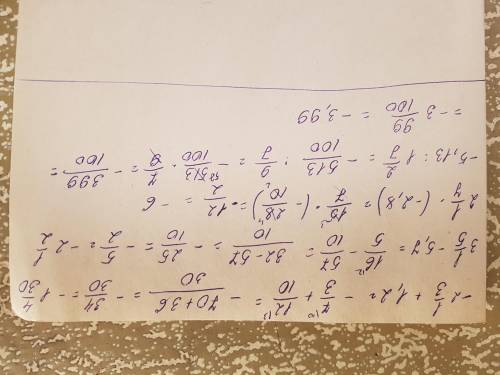 -2 1/3 + 1,2 = - 7/3 + 12/10 = - (70+36)/30 = - 34/30 = - 1 4/30
3 1/5 - 5,7 = 16/5 - 57/10 = (32-57)/10 = - 25/10 = - 5/2 = - 2 1/2
2 1/7 · (-2,8) = 15/7 · (- 28/10) = - 12/2 = - 6
-5,13 : 1 2/7 = - 513/100 : 9/7 = - 513/100 · 7/9 = - 399/100 =
= -3 99/100 = -3,99